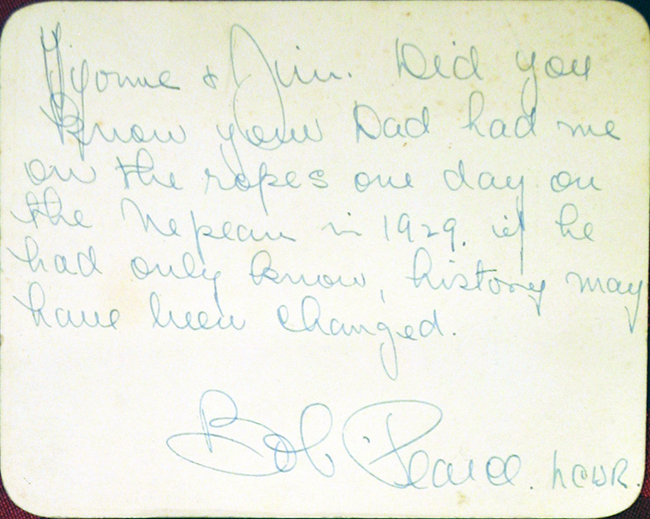 Yvonne & Jim. Did you
know your Dad had me
on the ropes one day on
the Nepean in 1929. if he
had only know, history may
have been changed.
Bob Pearce.